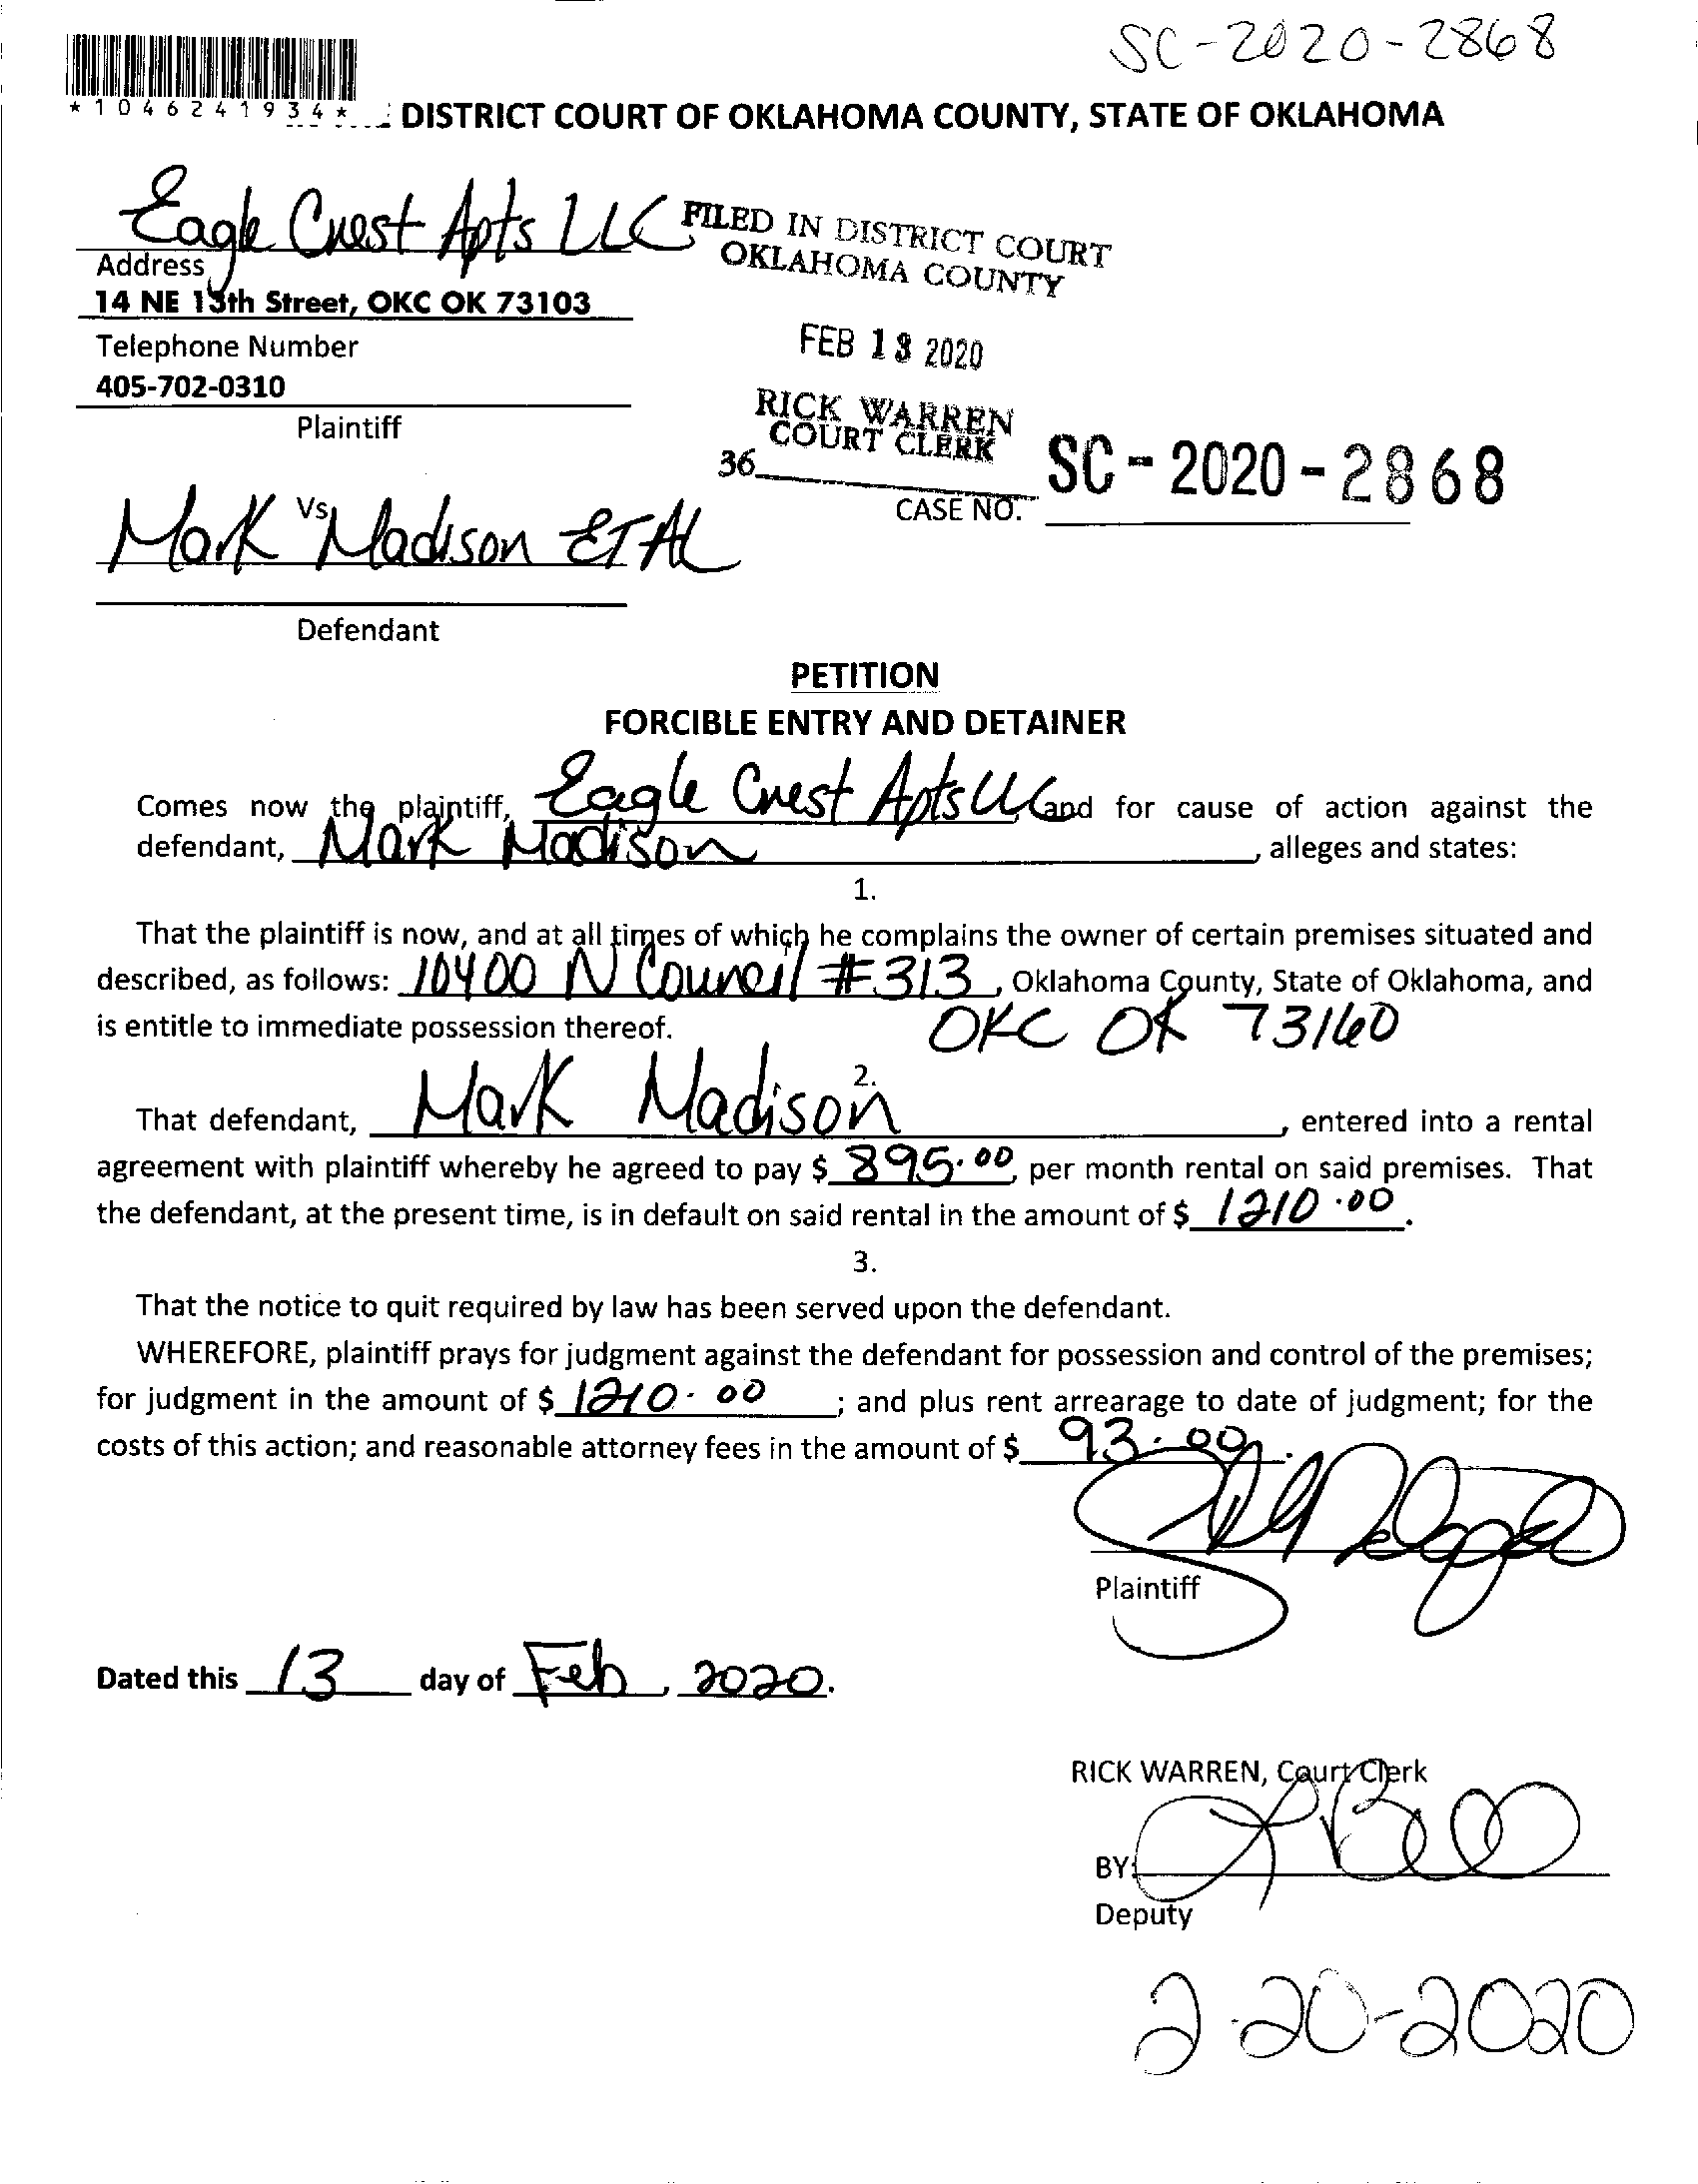 SC-2020-2868
*1046241934*
DISTRICT COURT OF OKLAHOMA COUNTY, STATE OF OKLAHOMA
Eagle Crest Apts LLC
FILED IN DISTRICT COURT
OKLAHOMA COUNTY
Address
14 NE 13th Street, OKC OK 73103
Telephone Number
405-702-0310
FEB 13 2020
Plaintiff
RICK WARREN
COURT CLERK
36
CASE NO. SC-2020-2868
Vs
Mark Madison ET AL
Defendant
PETITION
FORCIBLE ENTRY AND DETAINER
Comes now the plaintiff, Eagle Crest Apts LLC and for cause of action against the
defendant, Mark Madison, alleges and states:
1.
That the plaintiff is now, and at all times of which he complains the owner of certain premises situated and
described, as follows: 10400 N Council #313, Oklahoma County, State of Oklahoma, and
is entitle to immediate possession thereof. OKC OK 73160
2.
That defendant, Mark Madison, entered into a rental
agreement with plaintiff whereby he agreed to pay $ 895.00, per month rental on said premises. That
the defendant, at the present time, is in default on said rental in the amount of $ 1210.00.
3.
That the notice to quit required by law has been served upon the defendant.
WHEREFORE, plaintiff prays for judgment against the defendant for possession and control of the premises;
for judgment in the amount of $ 1210.00; and plus rent arrearage to date of judgment; for the
costs of this action; and reasonable attorney fees in the amount of $ 93.00.
Plaintiff
Dated this 13 day of Feb, 2020.
RICK WARREN, Court Clerk
BY:
Deputy
2-20-2020